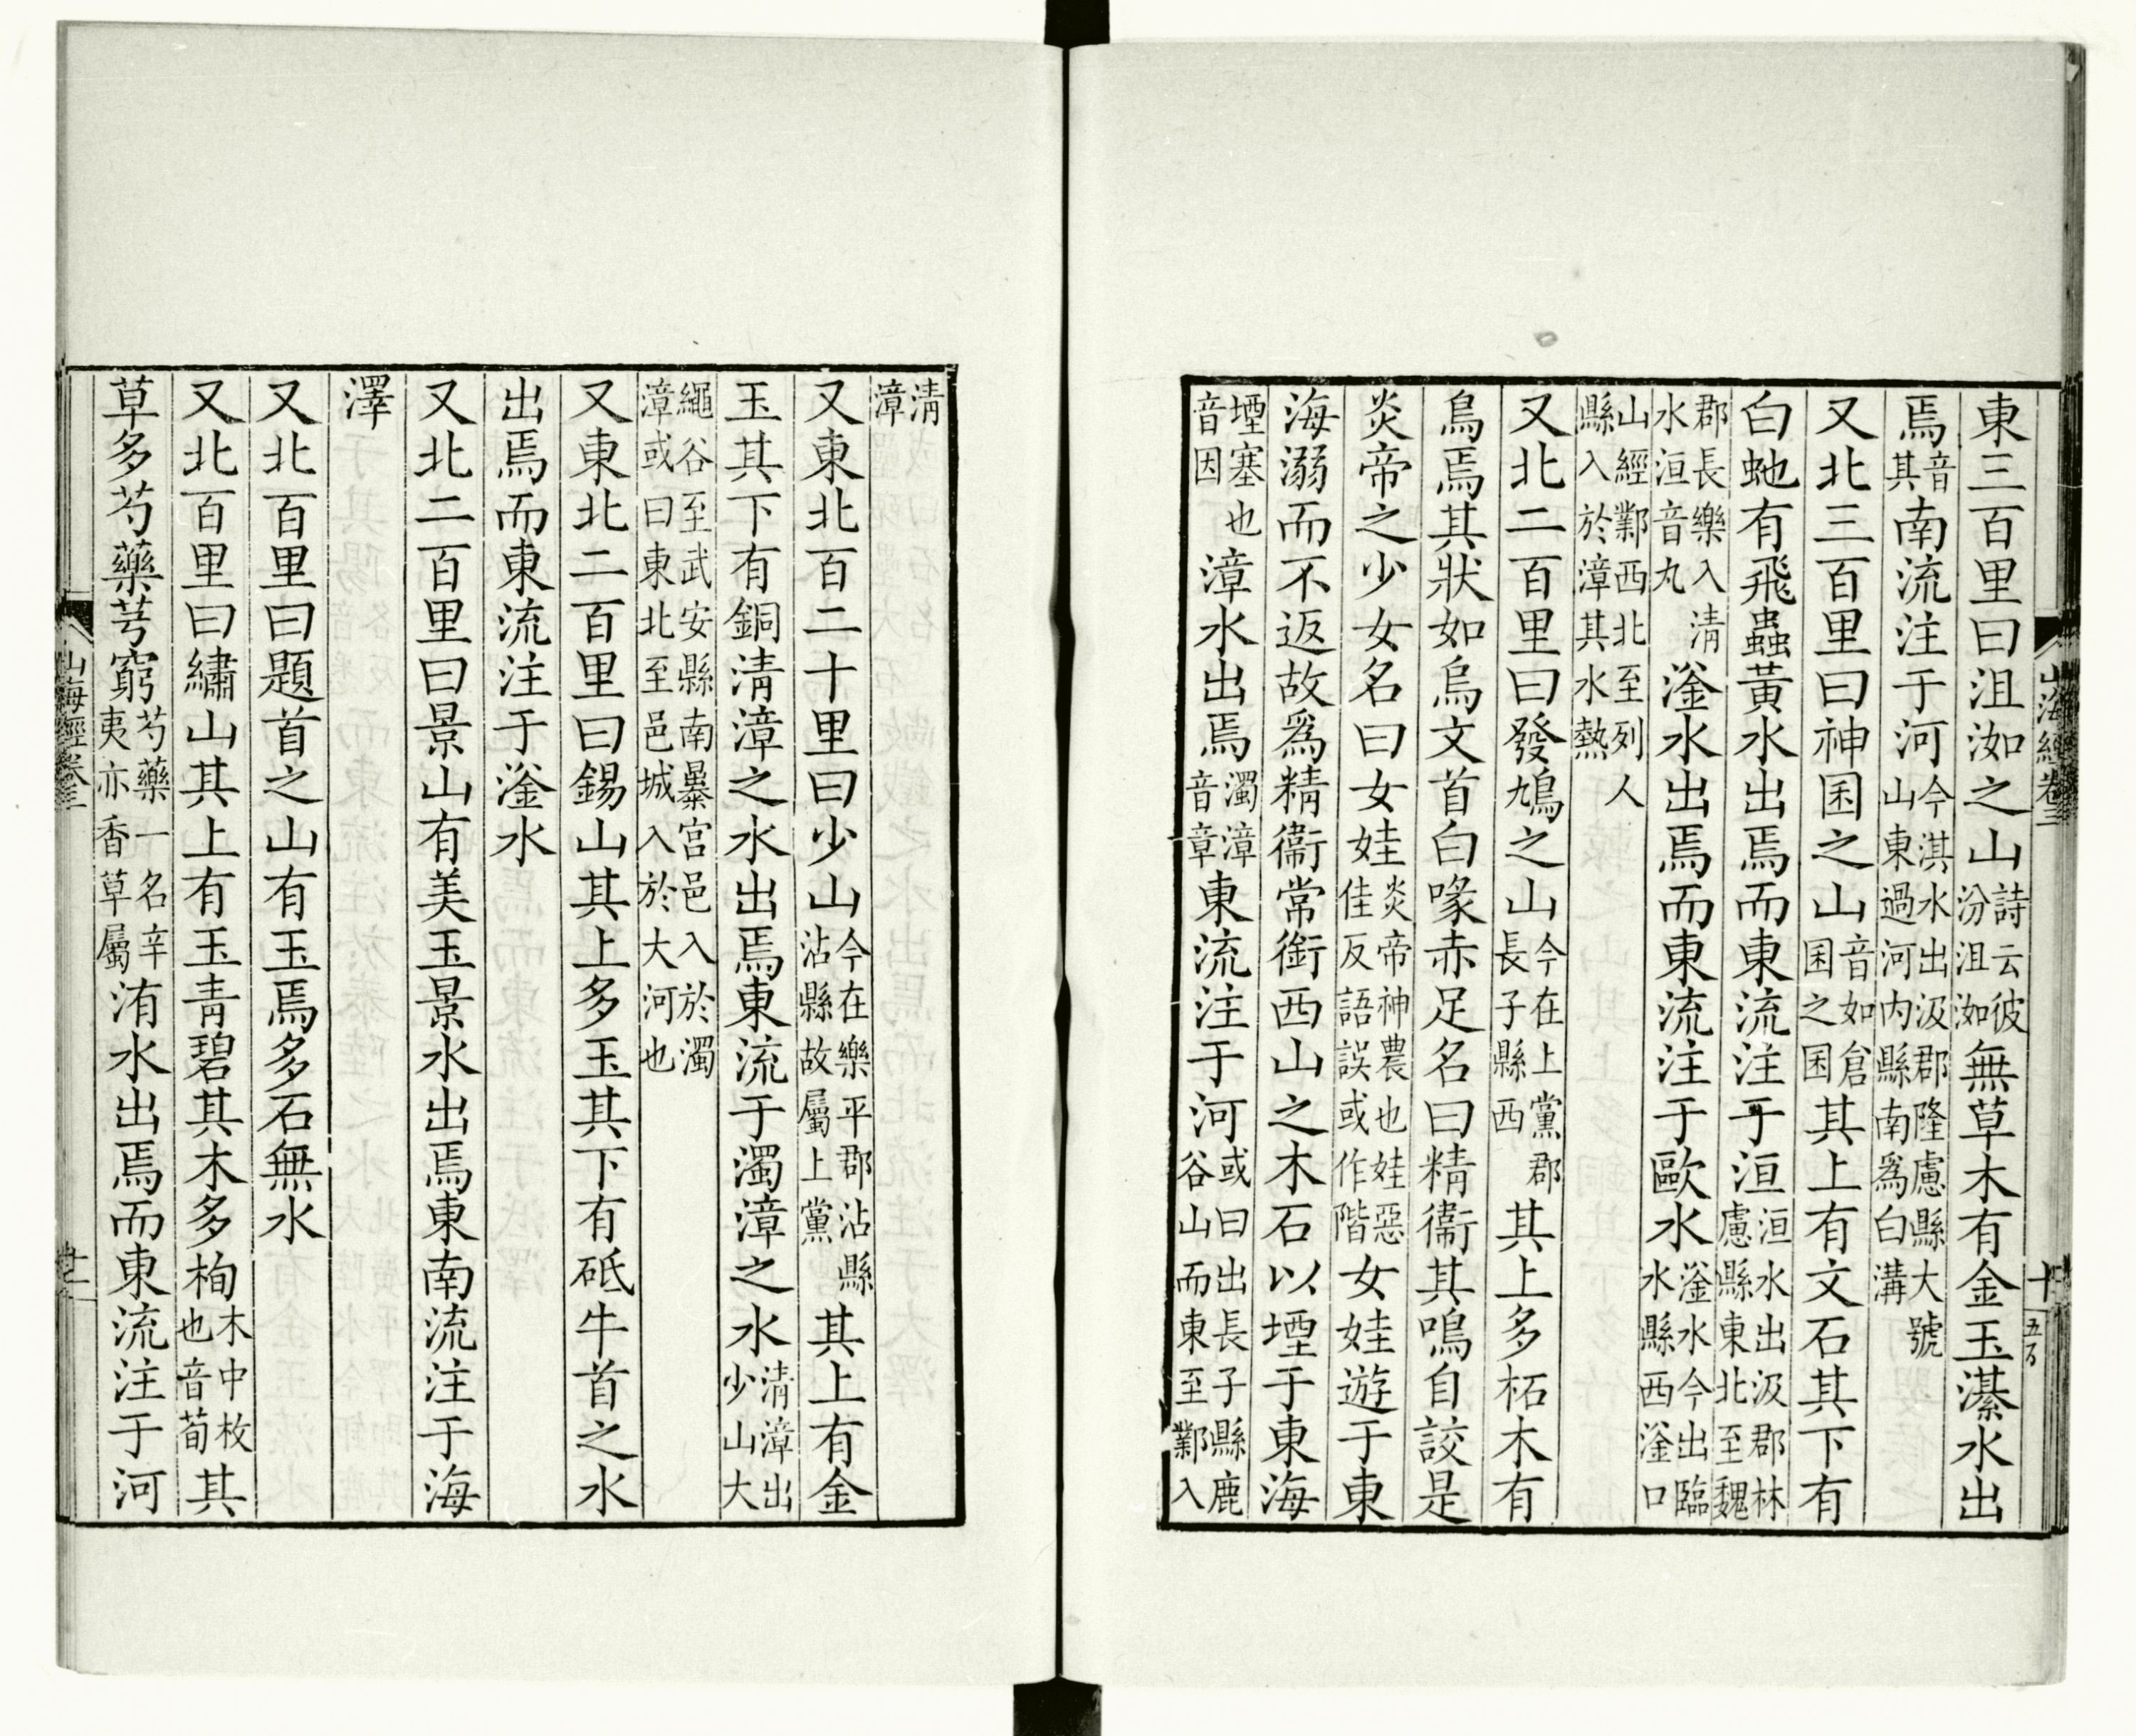 東三百里曰沮洳之山詩云彼汾沮洳無草木有金玉濝水出
焉音其南流注于河今淇水出汲郡隆慮縣大號山東過河内縣南爲白溝
又北三百里曰神囷之山音如倉囷之囷其上有文石其下有
白虵有飛蟲黃水出焉而東流注于洹洹水出汲郡林慮縣東北至魏
郡長樂入清水洹音丸滏水出焉而東流注于歐水滏水今出臨水縣西滏口
山經鄴西北至列人縣入於漳其水熱
又北二百里曰發鳩之山今在上黨郡長子縣西其上多柘木有
鳥焉其狀如烏文首白喙赤足名曰精衞其鳴自詨是
炎帝之少女名曰女娃炎帝神農也娃惡佳反語誤或作階女娃遊于東
海溺而不返故爲精衞常銜西山之木石以堙于東海
堙塞也音因漳水出焉濁漳音章東流注于河或曰出長子縣鹿谷山而東至鄴入
清漳
又東北百二十里曰少山今在樂平郡沾縣沾縣故屬上黨其上有金
玉其下有銅清漳之水出焉東流于濁漳之水清漳出少山大
繩谷至武安縣南暴宫邑入於濁漳或曰東北至邑城入於大河也
又東北二百里曰錫山其上多玉其下有砥牛首之水
出焉而東流注于滏水
又北二百里曰景山有美玉景水出焉東南流注于海
澤
又北百里曰題首之山有玉焉多石無水
又北百里曰繡山其上有玉青碧其木多栒木中枚也音荀其
草多芍藥芎藭芍藥一名辛夷亦香草屬洧水出焉而東流注于河
山海經卷三
十
山海經卷三
十一